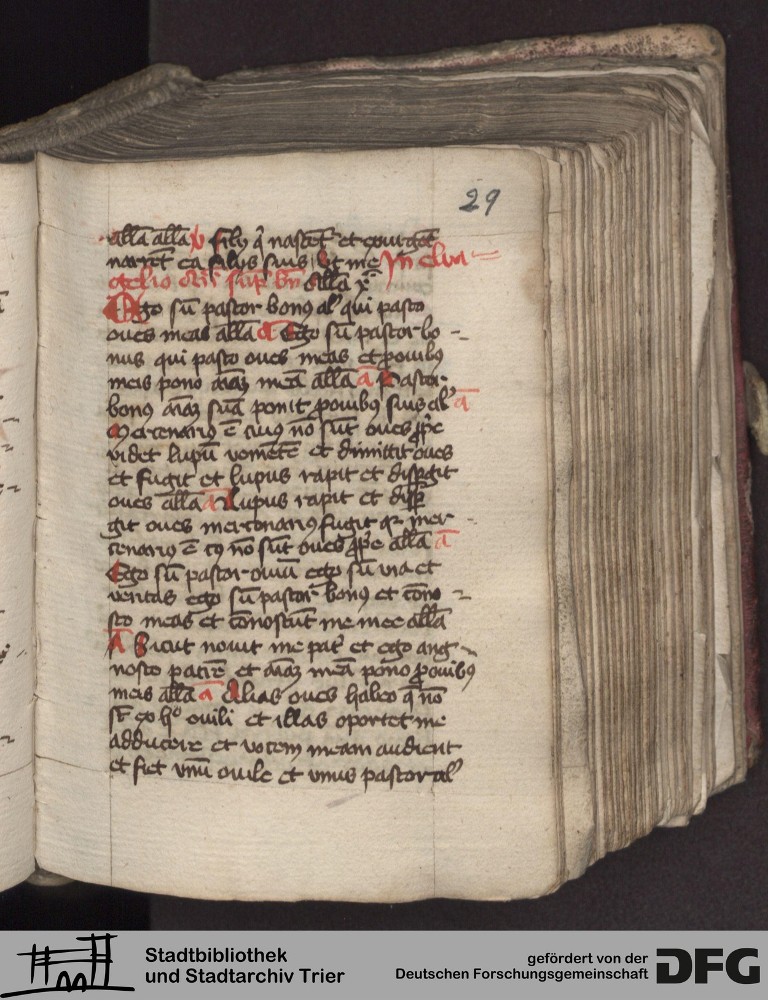 29
allā allā v filij q̄ nascet᷑ et exurgēt
narrēt ea filijs suis Vt me Jn ewa
gelio sup̄ bn̄ allā
Ego sū pastor bonꝯ al' qui pasco
oues meas allā a Ego sū pastor bo
nus qui pasco oues meas et p ouibꝯ
meis pono aīaꝫ meā allā a Pastor
bonꝯ aīaꝫ suā ponit p ouibꝯ suis al' a
Mercenariꝯ ē cuiꝯ nō sūt oues ꝓp̄e
videt lupū venietē et dimittit oues
et fugit et lupus rapit et disꝑgit
oues allā a Lupus rapit et disꝑ
git oues mercenariꝯ fugit qꝛ mer
cenariꝯ ē cꝯ nō sūt oues ꝓp̄e allā a
Ego sū pastor ouiū ego sū via et
veritas ego sū pastor bonꝯ et cōno
sco meas et cōnoscūt me mee allā
A Sicut nouit me pat᷑ et ego ang
nosco patrē et aīaꝫ meā pono p ouibꝯ
meis allā a Alias oues habeo q̄ nō
st̄ ex hº ouili et illas oportet me
adducere et vocem meam audient
et fiet vnū ouile et vnus pastor al'
Stadtbibliothek
und Stadtarchiv Trier
gefördert von der
Deutschen Forschungsgemeinschaft
DFG